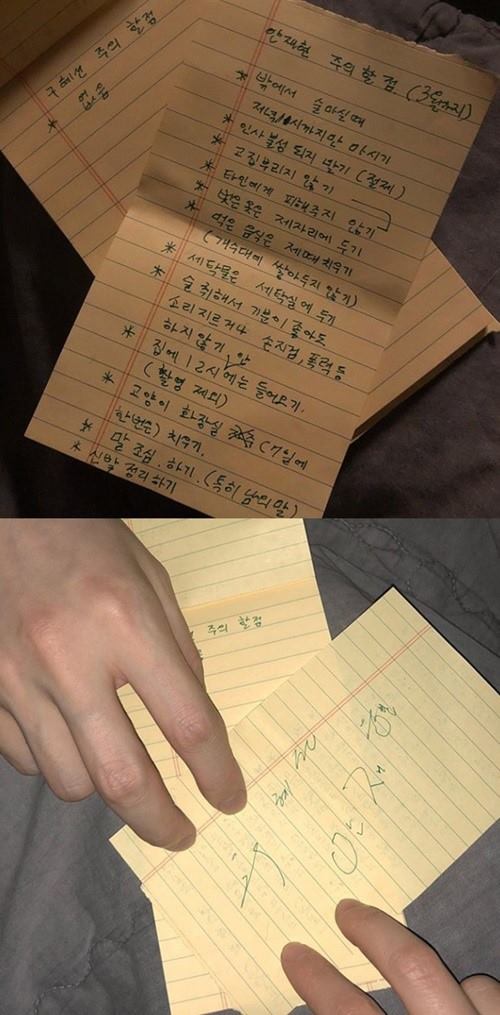 구혜선 주의 할점
* 없음
안재현 주의할점 (3월까지)
* 밖에서 술마실때
저녁 시까지만 마시기
* 인사불성 되지 말기 (절제)
* 고집부리지 않기
* 타인에게 피해주지 않기
* 벗은옷은 제자리에 두기
* 먹은 음식은 제때 치우기
(개수대에 쌓아두지 않기)
* 세탁물은 세탁실에 두기
* 술 취해서 기분이 좋아도
소리지르거나 손지검, 폭력 등
하지 않기
* 집에 12시 안에는 들어오기.
(촬영 제외)
* 고양이 화장실 (7일에
한번은) 치우기.
* 말 조심. 하기. (특히 남의 말)
* 신발 정리하기
주의 할점
구혜선
안재현